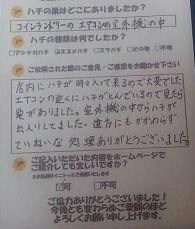 ハチの巣はどこにありましたか?
コインランドリーのエアコンの室外機の中
ハチの種類は何でしたか?
□アシナガバチ □スズメバチ □ミツバチ □その他 □不明
ご依頼された際のご意見・ご感想をお聞かせ下さい
店内にハチが時々入って来るので大変でした
エアコンの裏にハチがとんでいるので見たら
巣がありました。室外機の中からハチが
出入りしてました。遠方にもかかわらず
ていねいな処理ありがとうございました。
ご記入いただいた内容をホームページで
ご紹介しても宜しいですか?
可 □不可
ご協力ありがとうございました!
今後とも変わらぬご愛顧のほど
よろしくお願い申し上げます。